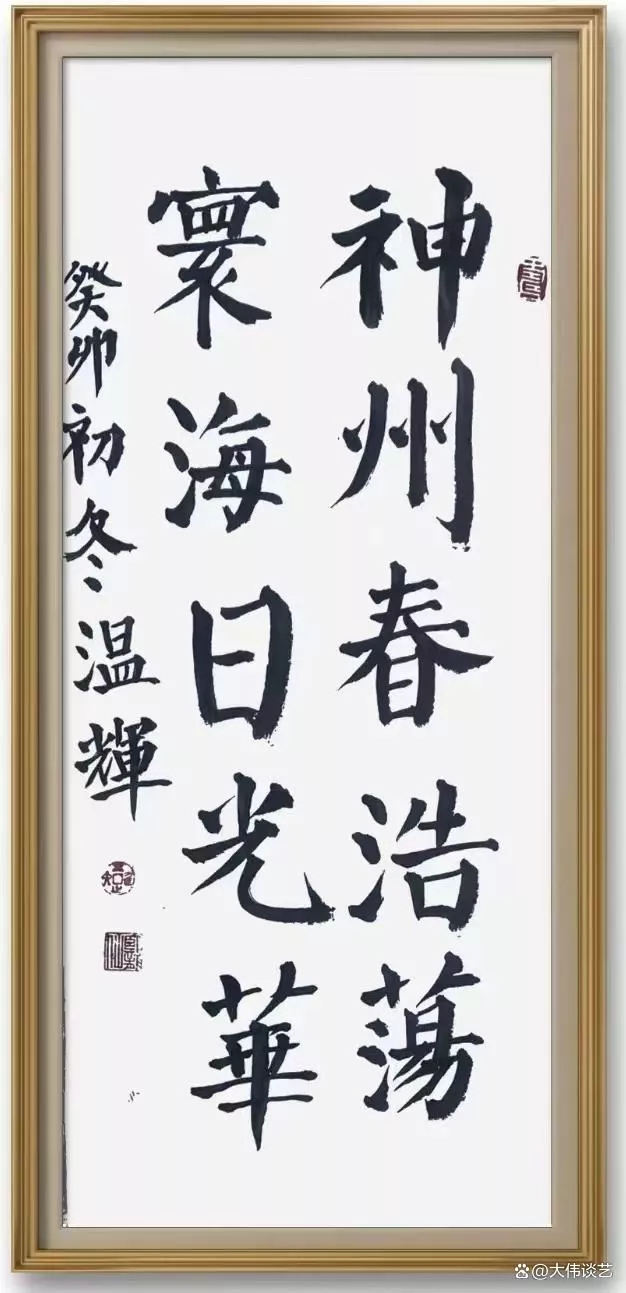 神州春浩蕩
寰海日光華
癸卯初冬温輝
@大伟谈艺